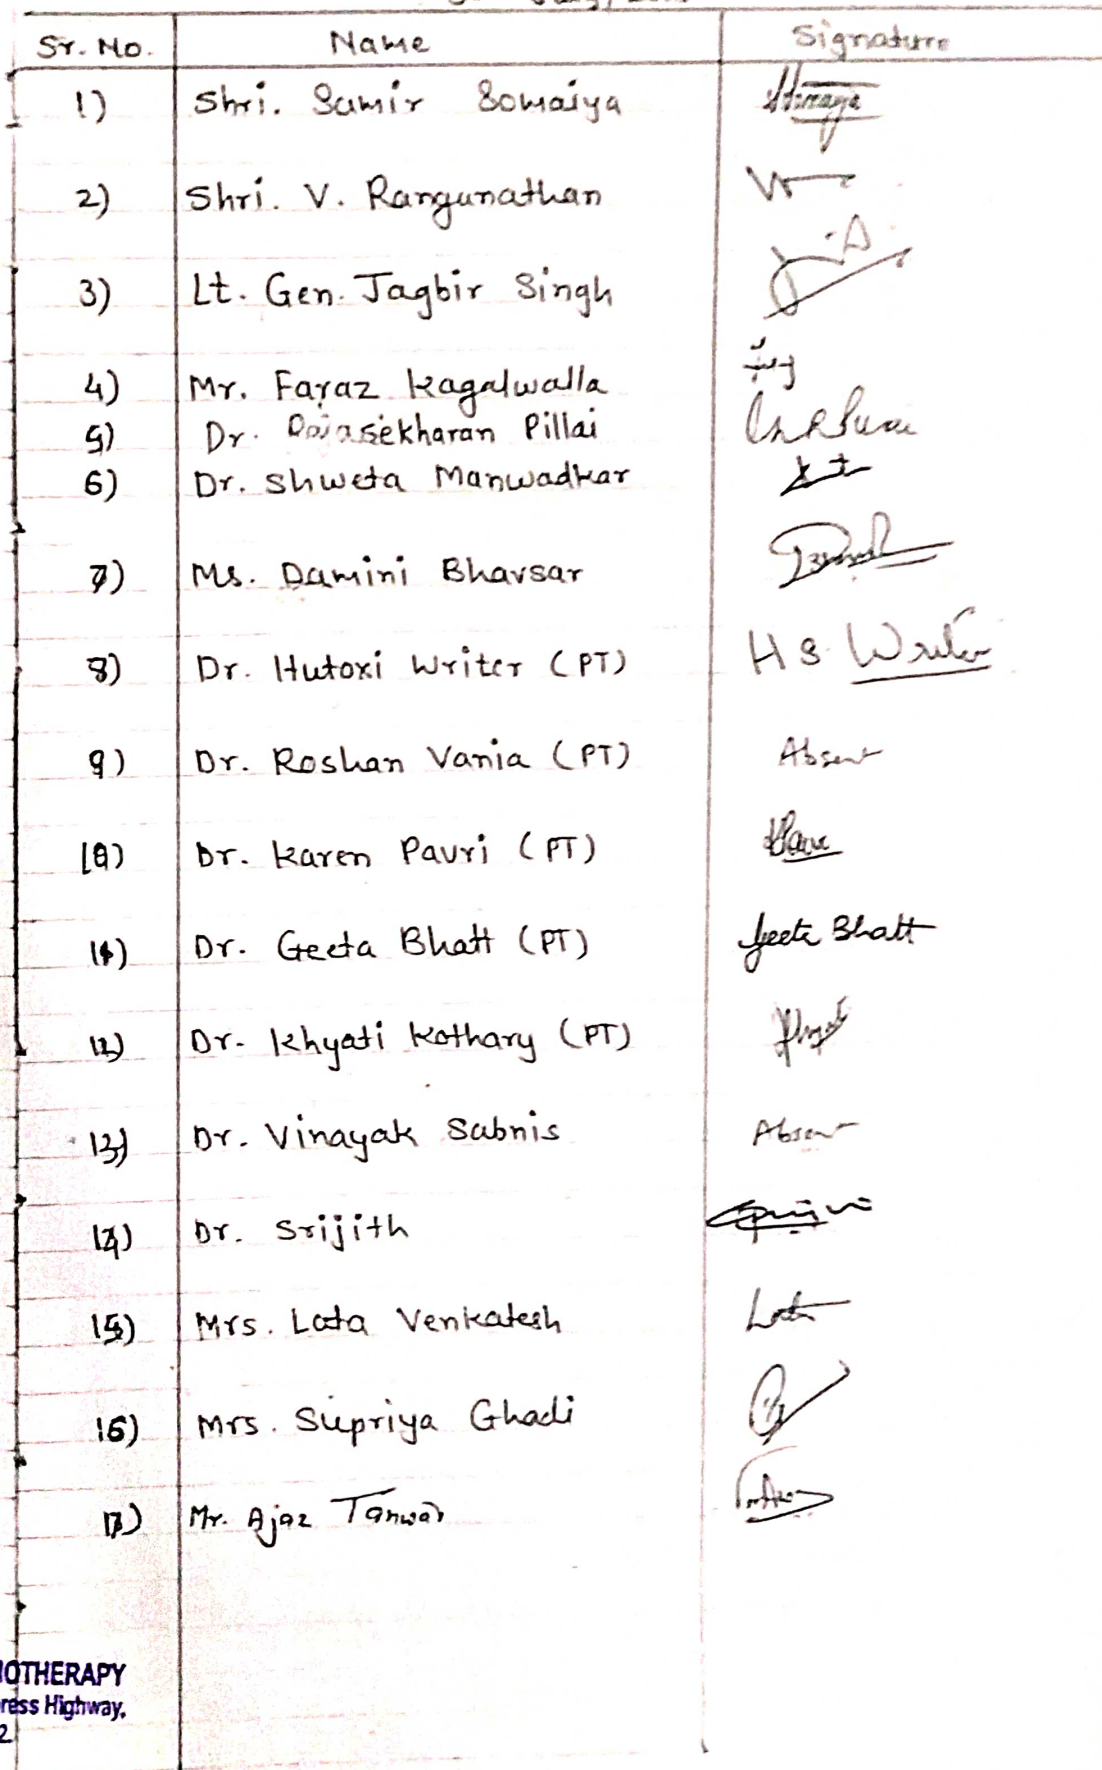 Sr. No. Name Signature
1) Shri. Samir Somaiya
2) Shri. V. Rangunathan
3) Lt. Gen. Jagbir Singh
4) Mr. Faraz Kagalwalla
5) Dr. Rajasekharan Pillai
6) Dr. Shweta Manwadkar
7) Ms. Damini Bhavsar
8) Dr. Hutoxi Writer (PT) H S Writer
9) Dr. Roshan Vania (PT) Absent
10) Dr. Karen Pavri (PT)
11) Dr. Geeta Bhatt (PT) Geeta Bhatt
12) Dr. Khyati Kothary (PT)
13) Dr. Vinayak Sabnis Absent
14) Dr. Srijith
15) Mrs. Lata Venkatesh Lata
16) Mrs. Supriya Ghadi
17) Mr. Ajaz Tanwar
IOTHERAPY
ress Highway,
2